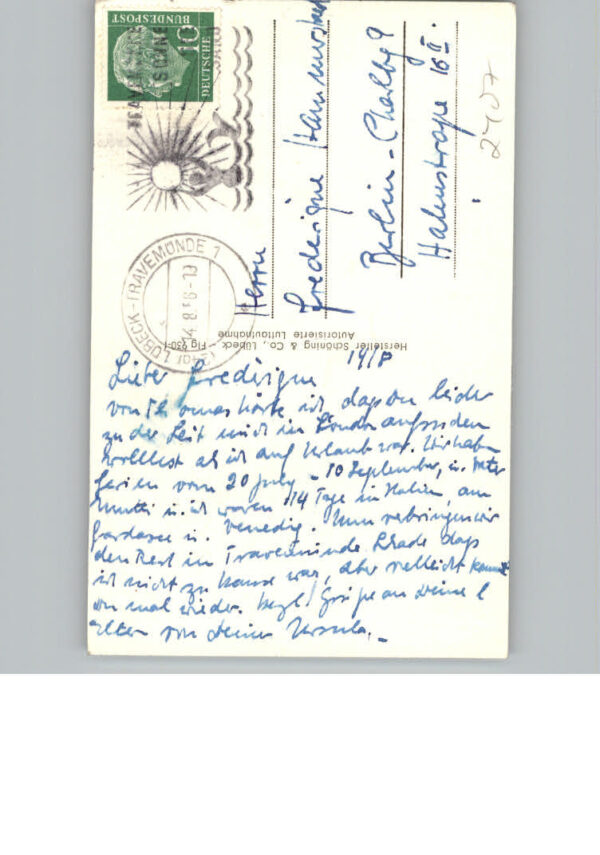 DEUTSCHE
BUNDESPOST
10
LÜBECK-TRAVEMÜNDE 1
Herrn
Frederigue
Berlin-Charlbg 9
16 II.
2407
Hersteller Schöning & Co., Lübeck - Flg
Autorisierte Luftaufnahme
19/8
Lieber Frederigue
von Thomas hörte ich, dass du leider
zu der Zeit mich in London aufsuchen
wolltest als ich auf Urlaub war. Wir haben
Ferien vom 20 July - 10 September, u. Vater
Mutti u. ich waren 14 Tage in Italien, am
Gardasee u. Venedig. Nun verbringen wir
den Rest in Travemünde. Schade dass
ich nicht zu hause war, aber vielleicht kommst
du mal wieder. Herzl. Grüße an Deine l
Eltern von Deiner Ursula.